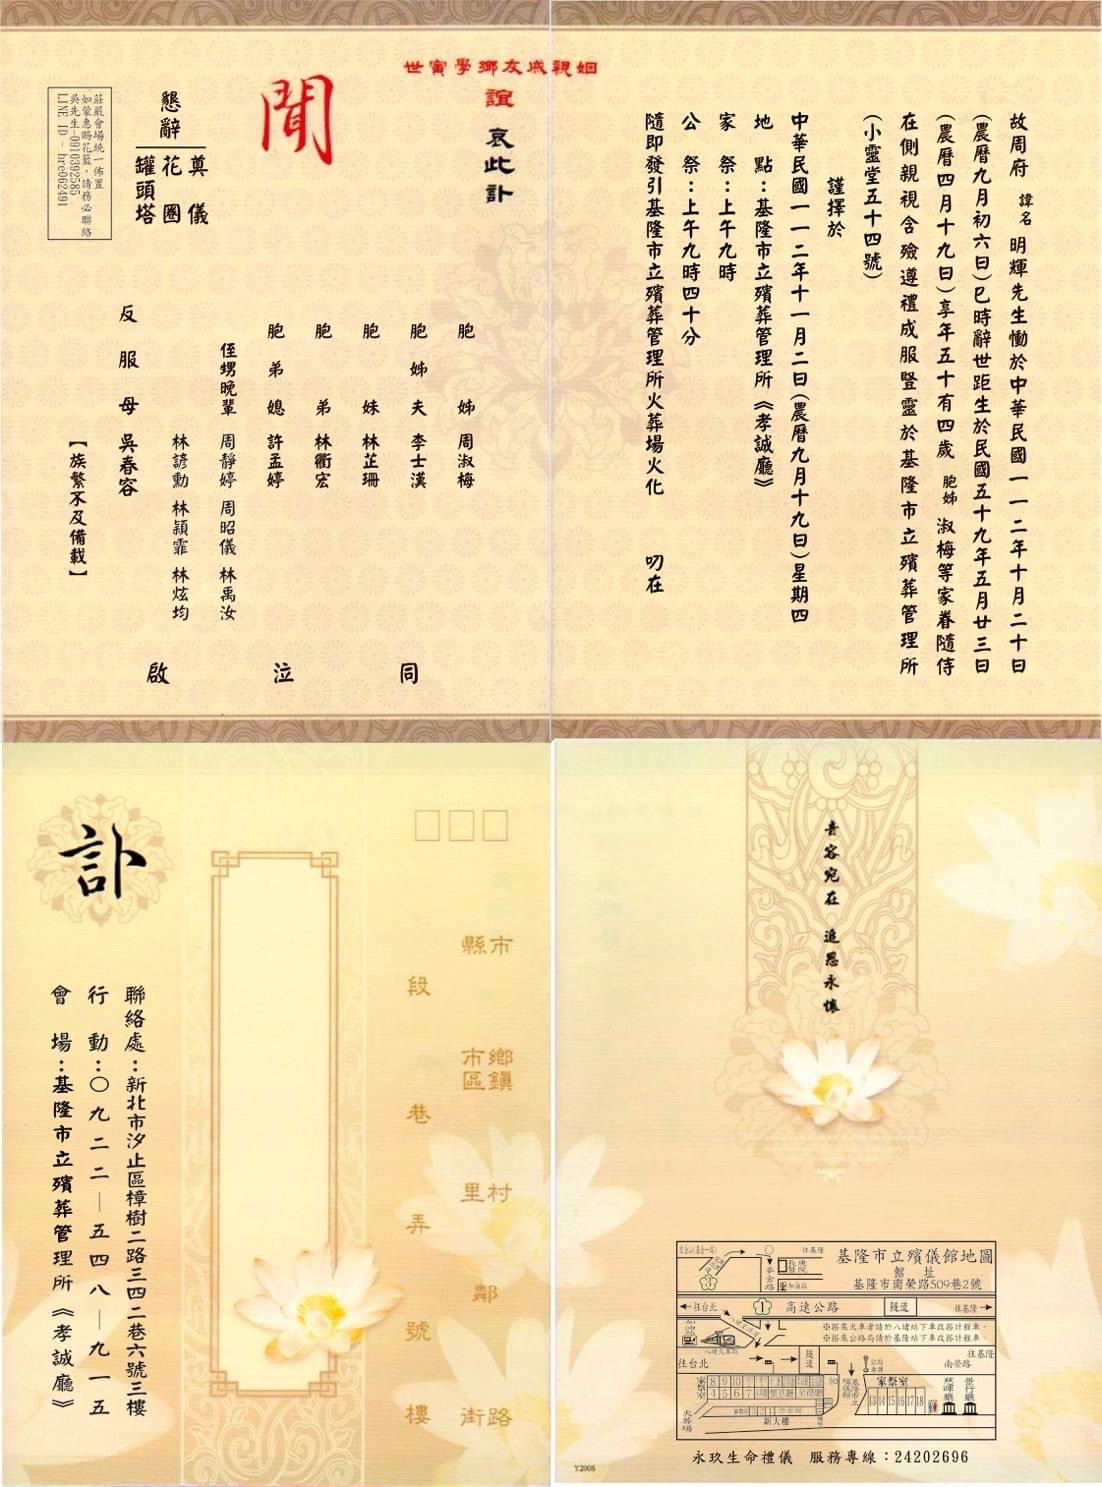 故周府 諱名 明輝先生慟於中華民國一一二年十月二十日
(農曆九月初六日)巳時辭世距生於民國五十九年五月廿三日
(農曆四月十九日)享年五十有四歲 胞姊 淑梅等家眷隨侍
在側親視含殮遵禮成服豎靈於基隆市立殯葬管理所
(小靈堂五十四號)
謹擇於
中華民國一一二年十一月二日(農曆九月十九日)星期四
地 點:基隆市立殯葬管理所《孝誠廳》
家 祭:上午九時
公 祭:上午九時四十分
隨即發引基隆市立殯葬管理所火葬場火化 叨在
姻親戚友鄉學寅世
誼 哀此訃
聞
懇辭
奠儀
花圈
罐頭塔
莊嚴會場統一佈置
如蒙惠賜花籃，請務必聯絡
吳先生-0910392585
LINE ID - hre062491
胞姊 周淑梅
胞姊夫 李士漢
胞妹 林芷珊
胞弟 林衢宏
胞弟媳 許孟婷
侄甥晚輩 周靜婷 周昭儀 林禹汝
林諺勳 林穎霏 林炫均
反服母 吳春容
【族繁不及備載】
同泣啟
訃
縣市
鄉鎮
市區
村里
鄰
街路
段
巷
弄
號
樓
聯絡處:新北市汐止區樟樹二路三四二巷六號三樓
行 動:〇九二二—五四八—九一五
會 場:基隆市立殯葬管理所《孝誠廳》
音容宛在 追思永懷
基隆市立殯儀館地圖
館址
基隆市南榮路509巷2號
往基隆
長庚醫院
麥金路
加油站
往台北
1
高速公路
隧道
往基隆
※搭乘火車者請於八堵站下車改搭計程車。
※搭乘公路局請於基隆站下車改搭計程車。
八堵火車站
往台北
隧道
往基隆
南榮路
家祭室
8 9 10
4 5 6 7
家祭室
13 14 15 16 17 18
慈暉廳
景行廳
火葬場
新大樓
永玖生命禮儀 服務專線:24202696
Y2008